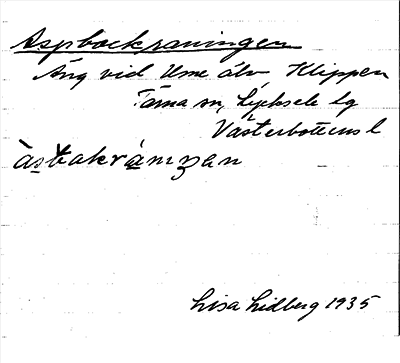 Aspbackraningen
Äng vid Ume älv Klippen
Tärna sn, Lycksele lg
Västerbottens l
àsbakràmman
Lisa Lidberg 1935